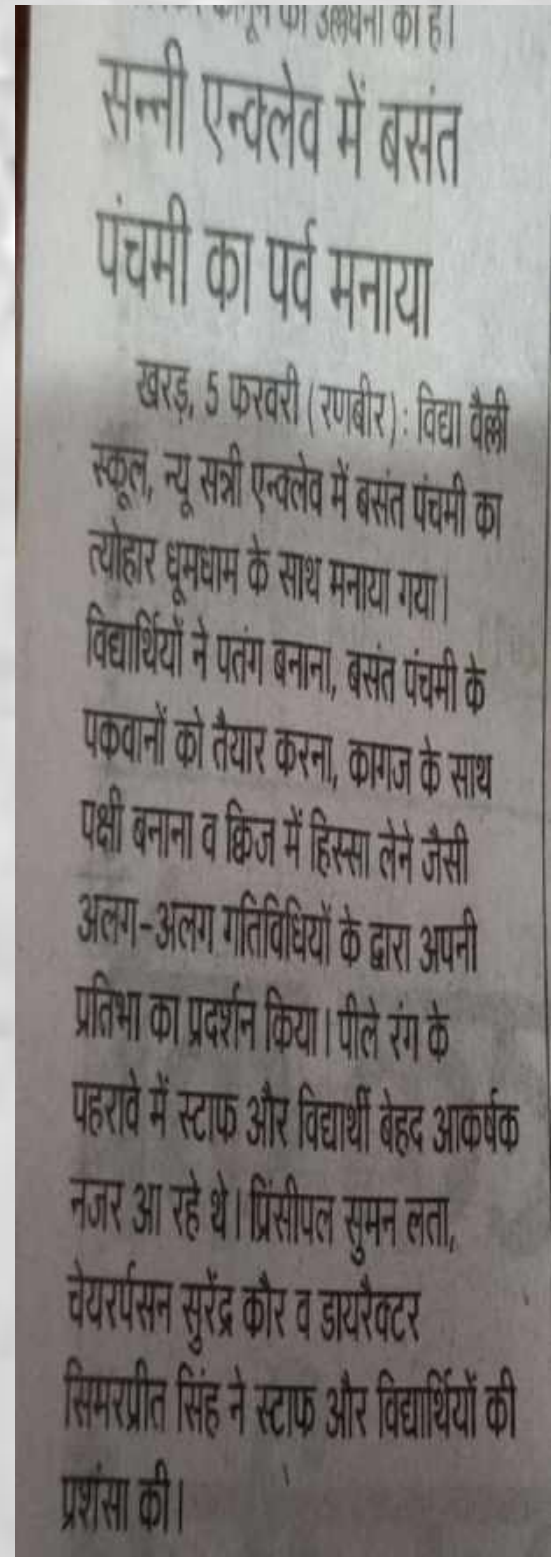 कानून की उल्लंघना की है।
सन्नी एन्क्लेव में बसंत
पंचमी का पर्व मनाया
खरड़, 5 फरवरी (रणबीर): विद्या वैल्ली
स्कूल, न्यू सन्नी एन्क्लेव में बसंत पंचमी का
त्योहार धूमधाम के साथ मनाया गया।
विद्यार्थियों ने पतंग बनाना, बसंत पंचमी के
पकवानों को तैयार करना, कागज के साथ
पक्षी बनाना व क्विज में हिस्सा लेने जैसी
अलग-अलग गतिविधियों के द्वारा अपनी
प्रतिभा का प्रदर्शन किया। पीले रंग के
पहरावे में स्टाफ और विद्यार्थी बेहद आकर्षक
नजर आ रहे थे। प्रिंसीपल सुमन लता,
चेयरर्पसन सुरेंद्र कौर व डायरैक्टर
सिमरप्रीत सिंह ने स्टाफ और विद्यार्थियों की
प्रशंसा की।